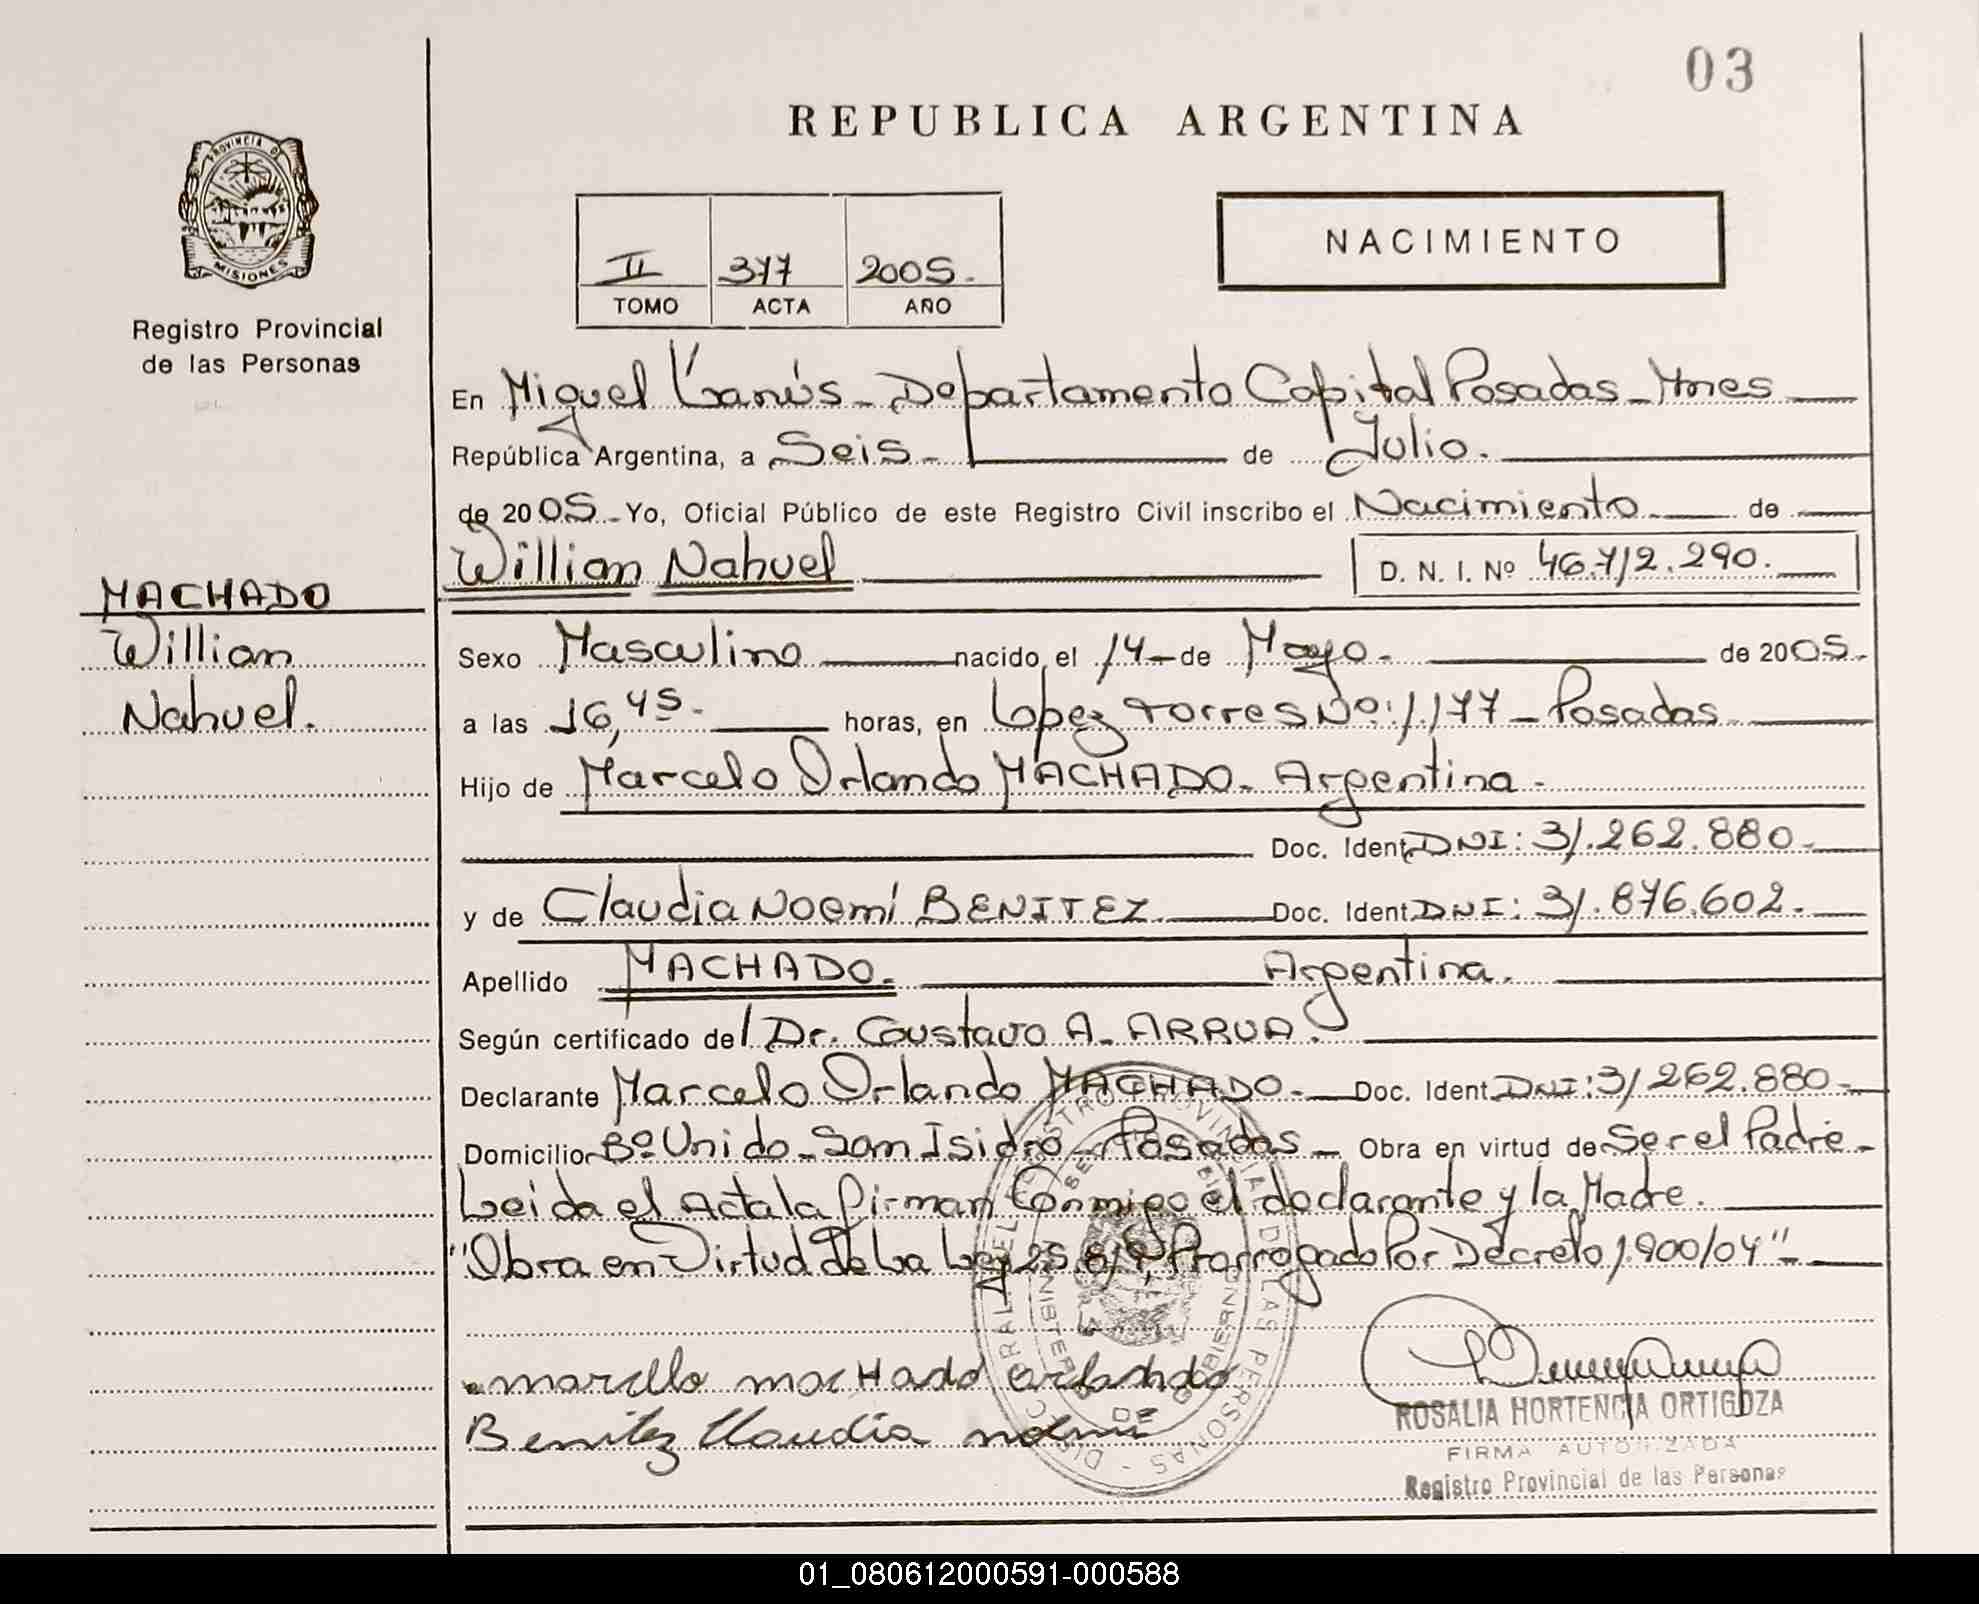 03
REPUBLICA ARGENTINA
PROVINCIA DE
MISIONES
Registro Provincial
de las Personas
II 377 2005.
TOMO ACTA AÑO
NACIMIENTO
En Miguel Lanús - Departamento Capital Posadas - Mnes
República Argentina, a Seis - de Julio.
de 2005 - Yo, Oficial Público de este Registro Civil inscribo el Nacimiento de
Willian Nahuel D. N. I. Nº 46.712.290.
MACHADO
Willian
Nahuel.
Sexo Masculino nacido el 14 - de Mayo - de 2005.
a las 16,45 - horas, en Lopez Torres Nº: 1.177 - Posadas
Hijo de Marcelo Orlando MACHADO - Argentina -
Doc. Ident. DNI: 31.262.880.
y de Claudia Noemí BENITEZ Doc. Ident. DNI: 31.876.602.
Apellido MACHADO. Argentina.
Según certificado del Dr. Gustavo A. ARRUA.
Declarante Marcelo Orlando MACHADO - Doc. Ident. DNI: 31.262.880 -
Domicilio Bº Unido - San Isidro - Posadas - Obra en virtud de Ser el Padre -
Leida el Acta la firman Conmigo el declarante y la Madre.
"Obra en Virtud de La Ley 25.819, Prorrogado Por Decreto 1.900/04" -
marcello machado orlando
Benitez Claudia noemi
ROSALIA HORTENCIA ORTIGOZA
FIRMA AUTORIZADA
Registro Provincial de las Personas
01_080612000591-000588